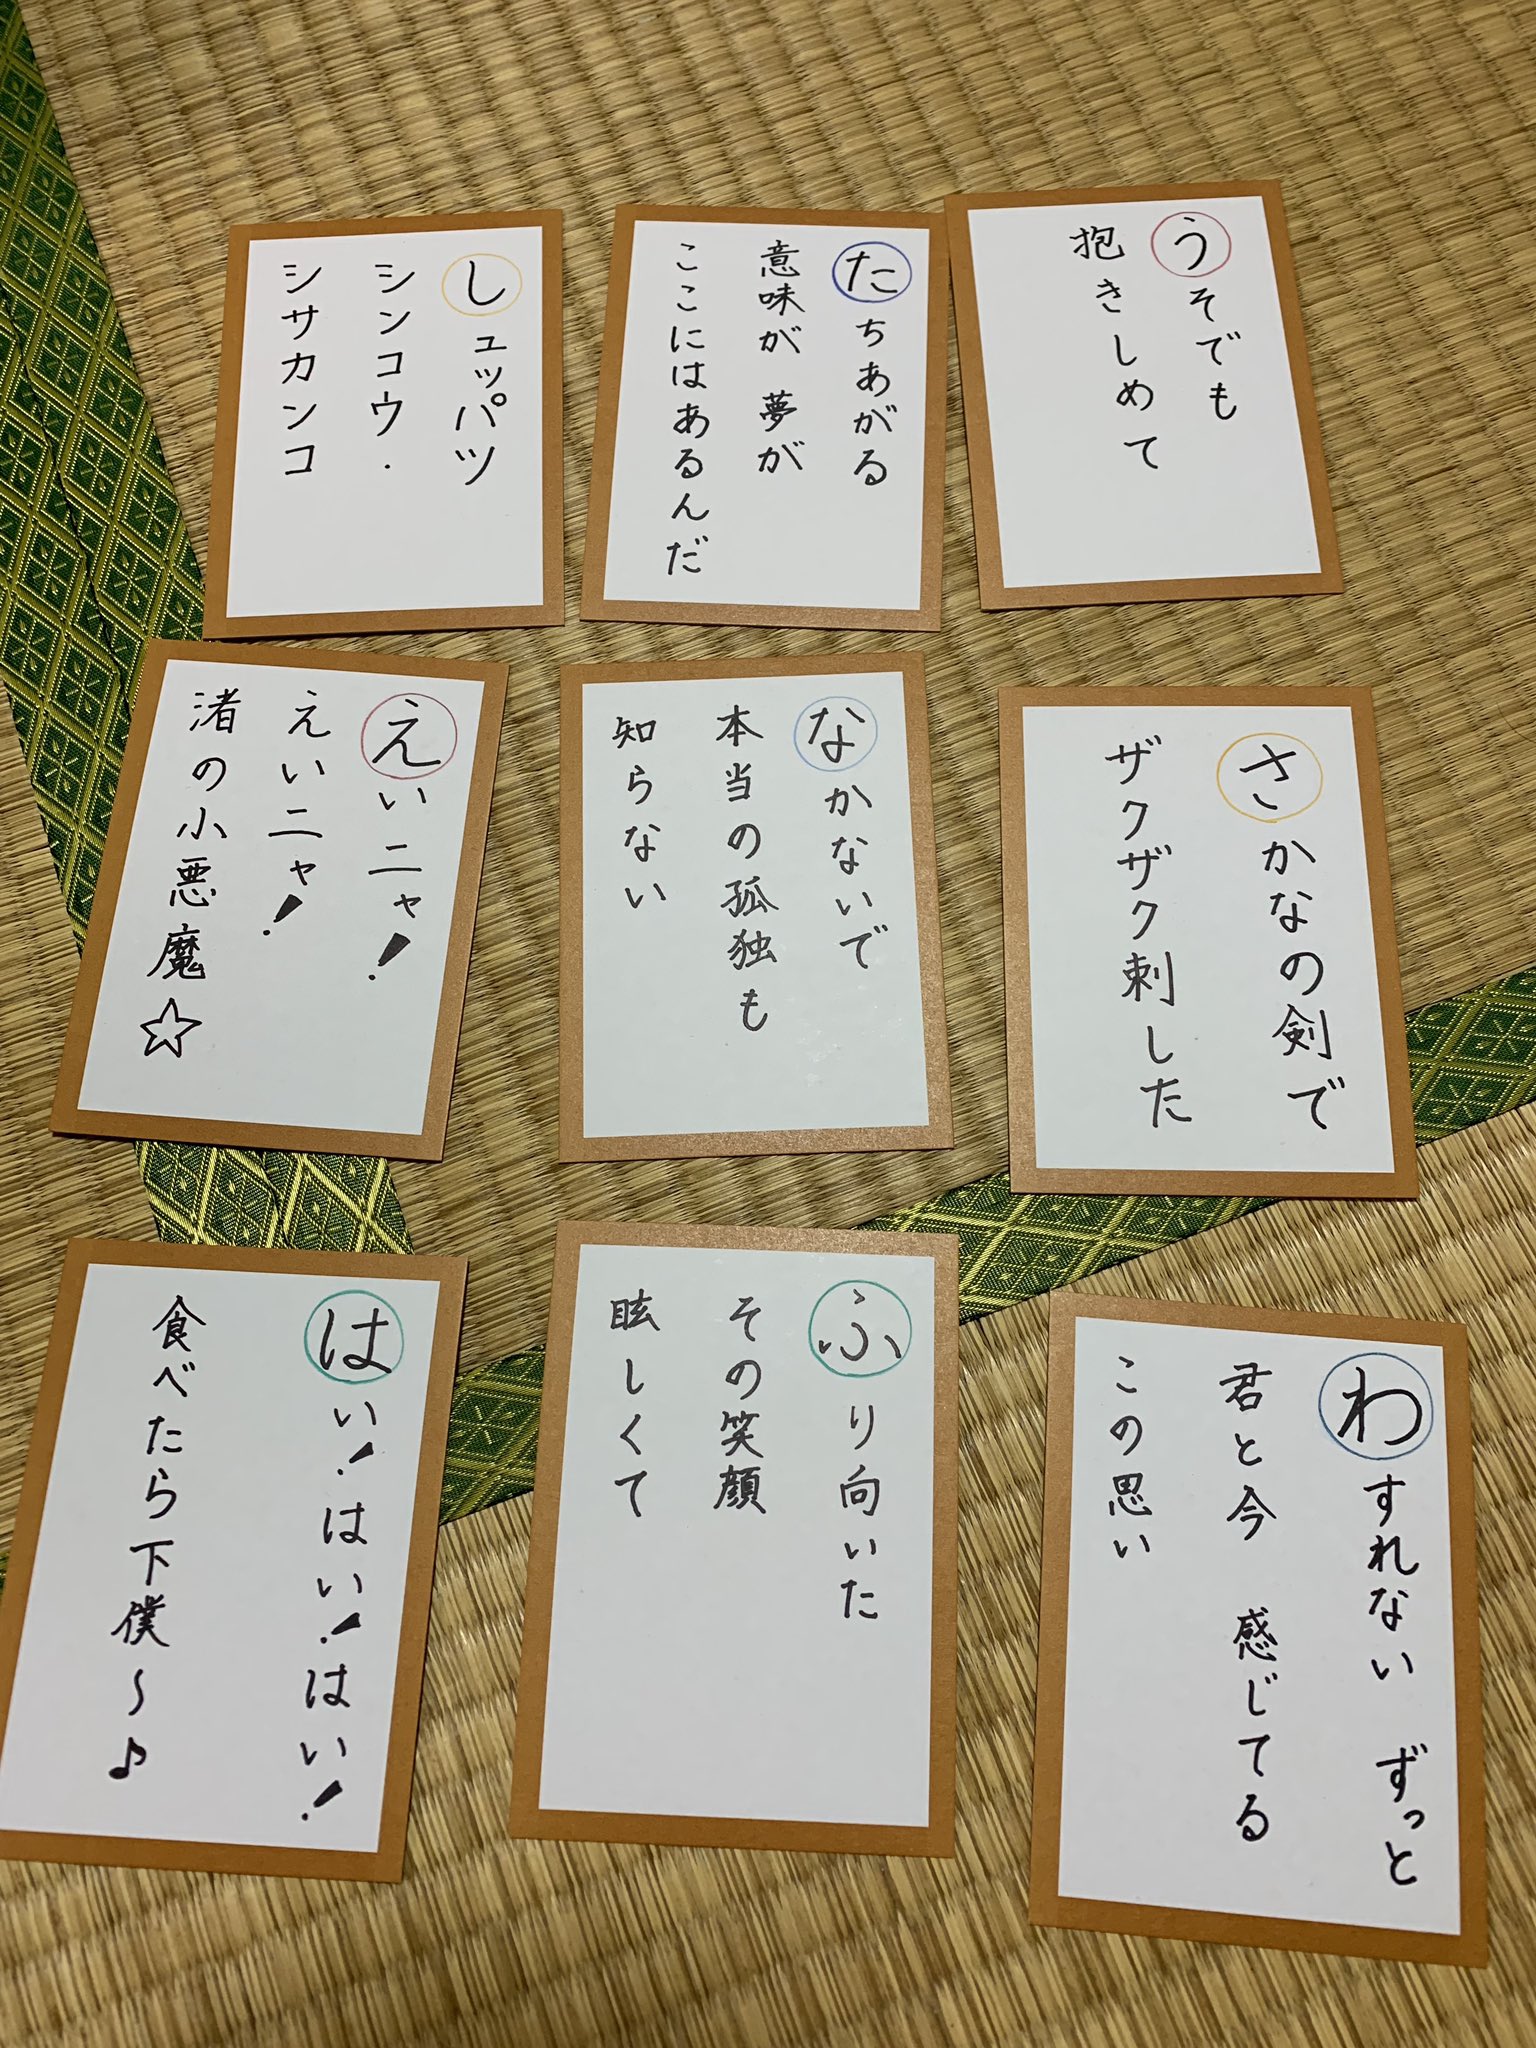 うそでも
抱きしめて
たちあがる
意味が 夢が
ここにはあるんだ
しュッパツ
シンコウ・
シサカンコ
さかなの剣で
ザクザク刺した
なかないで
本当の孤独も
知らない
えいニャ!
えいニャ!
渚の小悪魔☆
わすれない ずっと
君と今 感じてる
この思い
ふり向いた
その笑顔
眩しくて
はい!はい!はい!
食べたら下僕〜♪